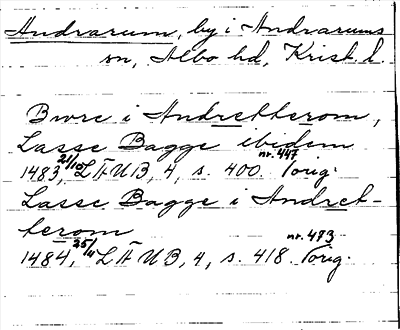 Andrarum, by i Andrarums
sn, Albo hd, Krist. l.
Bwre i Andretterom,
Lasse Bagge ibidem
1483 21/10, LÄUB, 4, s. 400 nr. 447. Torig.
Lasse Bagge i Andret-
terom
1484, 25/4 LÄUB, 4, s. 418 nr. 473. Torig.